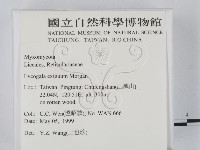 國立自然科學博物館
NATIONAL MUSEUM OF NATURAL SCIENCE
TAICHUNG, TAIWAN, R.O.CHINA
Myxomycota
Liceales, Reticulariaceae
Lycogala exiguum Morgan
Loc.: Taiwan, Pingtung,
22.04N, 120.51E, alt.
on rotten wood.
Coll.: C.C. Wen No. WAN 666
Date: May 05, 1999
Det.: Y.Z. Wang